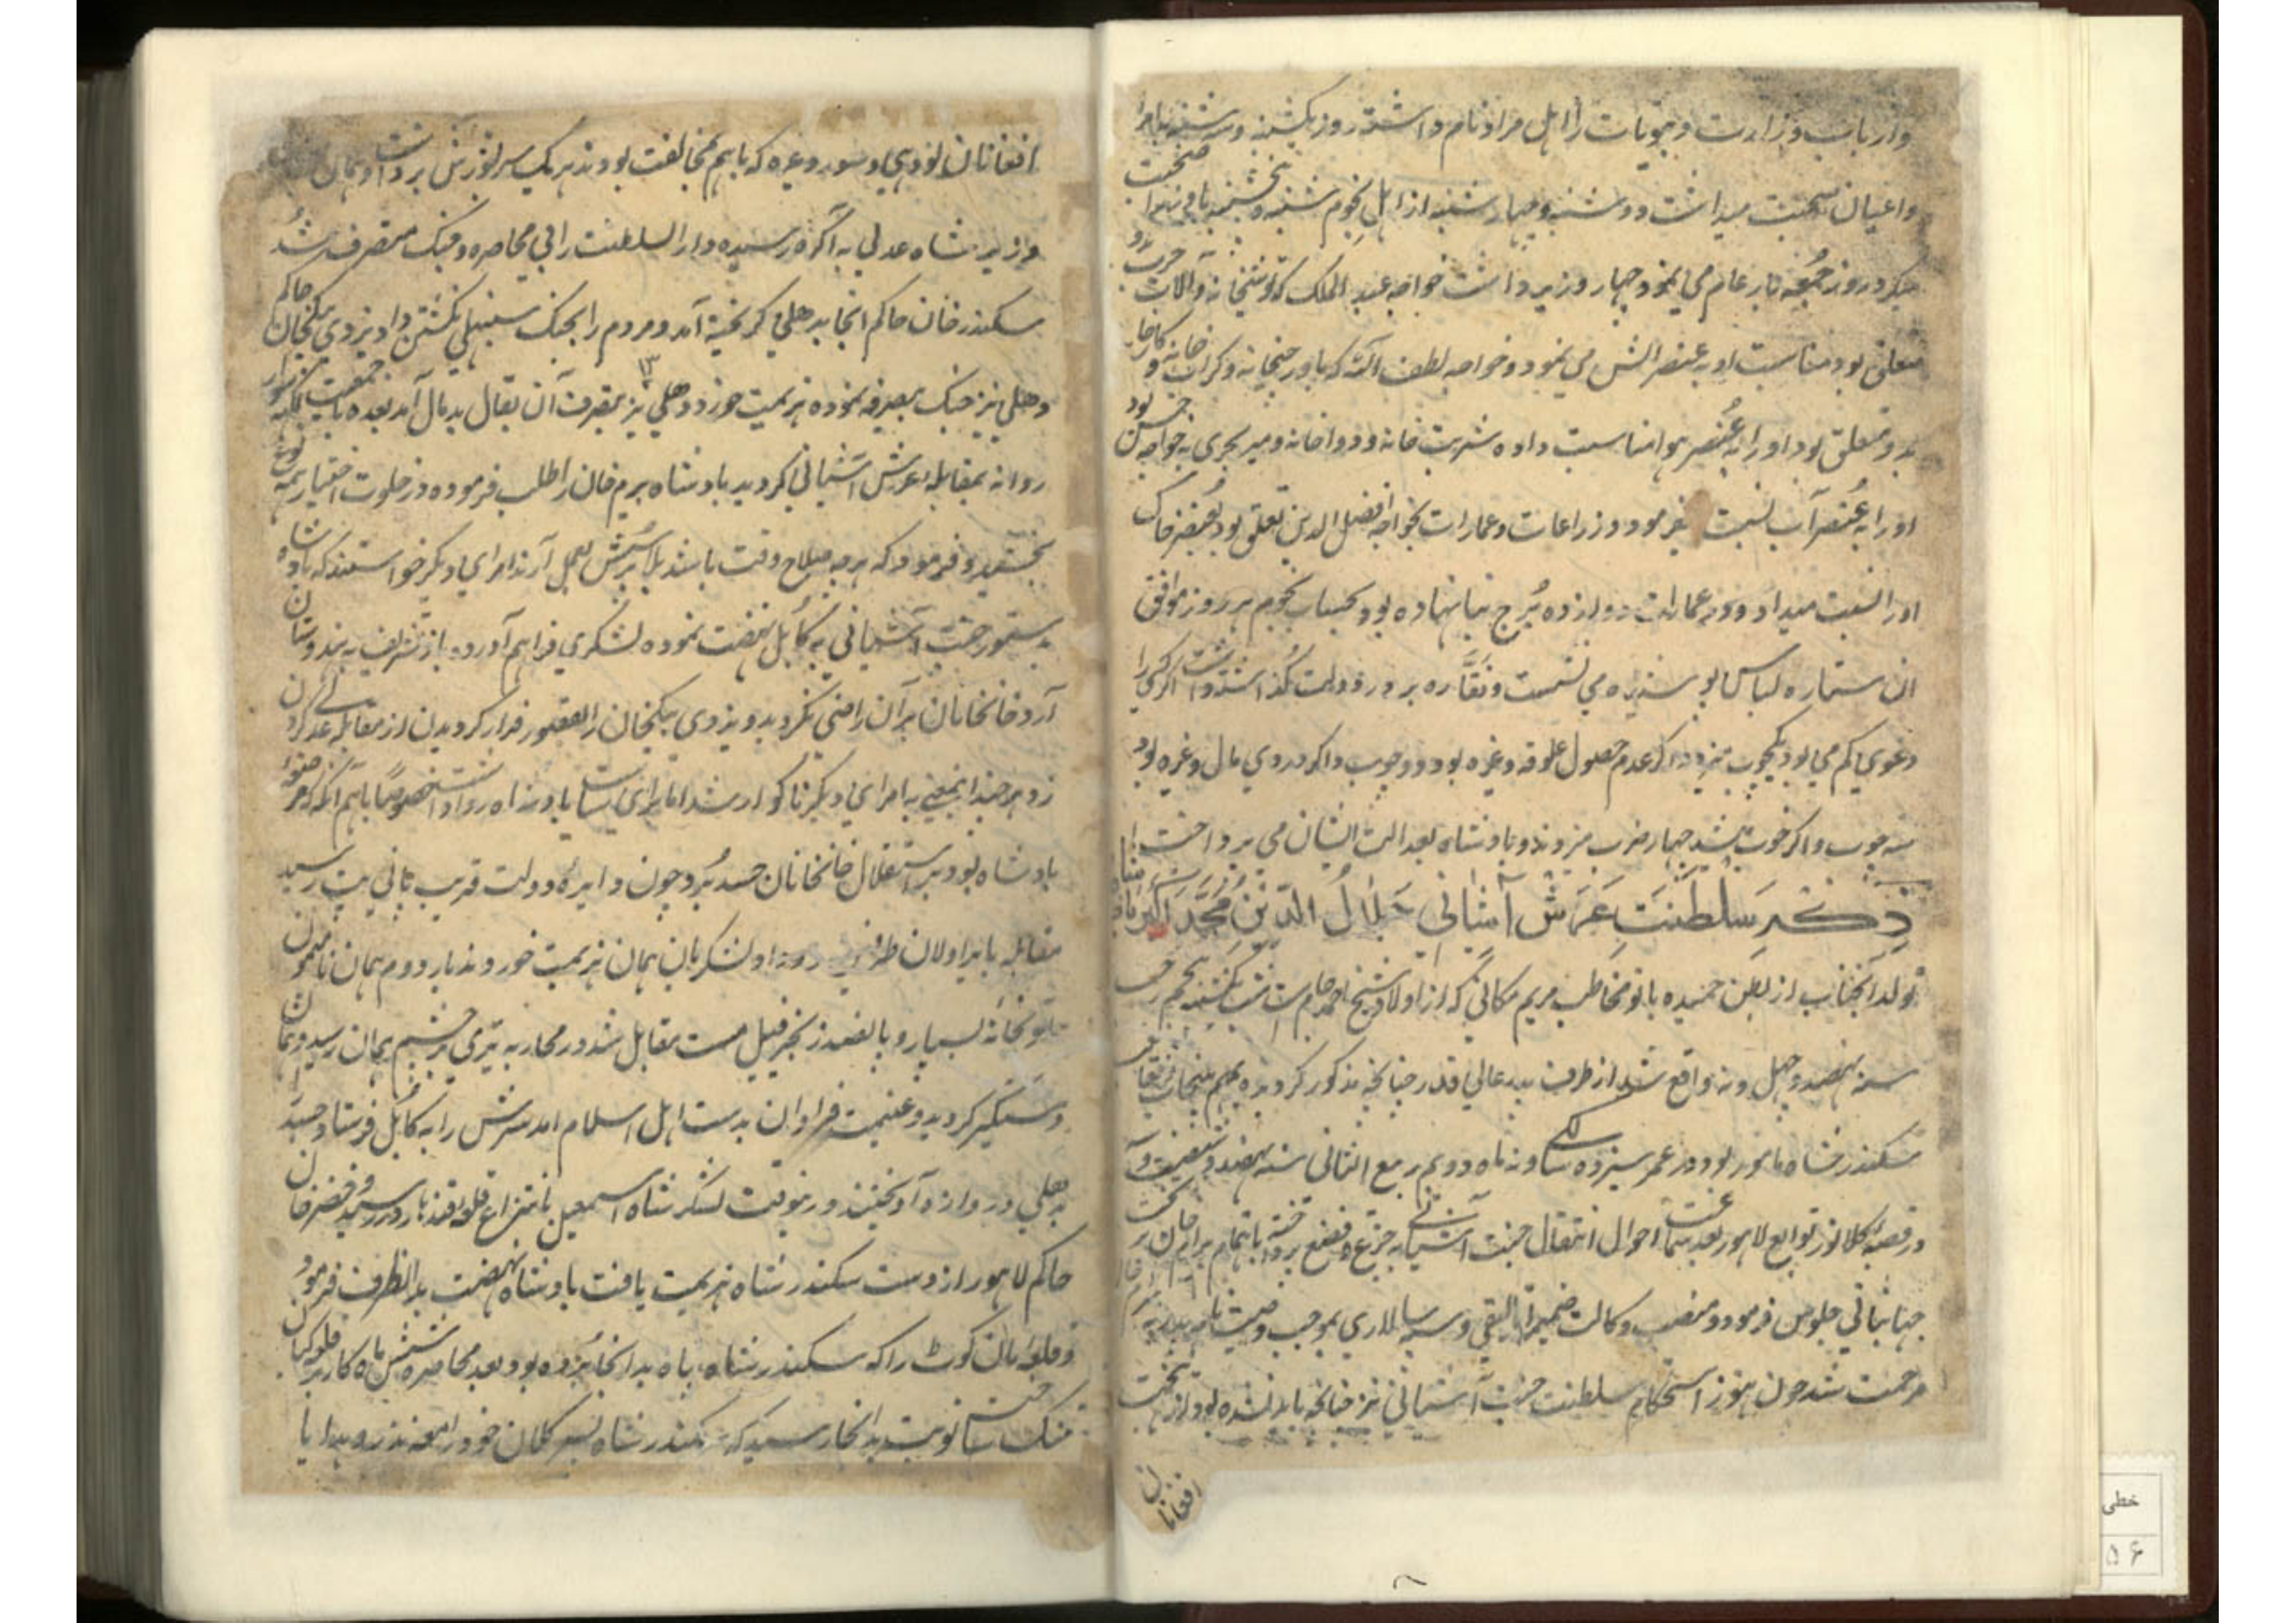 وارباب وزارت و بیوتات را اهل مراد نام داشته روز یکشنبه و سه شنبه با امرا
واعیان صحبت میداشت دوشنبه و چهارشنبه از اهل نجوم شنبه و پنجشنبه با صحبت
میکرد روز جمعه بار عام می نمود چهار وزیر داشت خواجه عبد الملک که توشخانه و آلات حرب
متعلق بود مناسبت او به عنصر آتش می نمود و خواجه لطف الله که باورچیخانه و کرکراق خانه و
بدو متعلق بود او را به عنصر هوا مناسبت داده شربت خانه و دواخانه و میر بحری به خواجه حسن بود
او را به عنصر آب نسبت میفرمود و زراعات و عمارات بخواجه افضل الدین تعلق بود بعنصر خاک
او را نسبت میداد و در عمارات دوازده برج بنا نهاده بود بحساب نجوم هر روز موافق
ان ستاره لباس پوشیده می نشست و نقاره بر در دولت گذاشته اگر کسی را
دعوی کم می بود یکچوب میزد و اگر عدم حصول علوفه و غیره بود دو چوب و اگر دزدی مال و غیره بود
سه چوب و اگر خون شد چهار ضرب میزدند و بادشاه بعدالت ایشان می پرداخت
ذکر سلطنت عرش آشیانی جلال الدین محمد اکبر
تولد آنجناب از بطن حمیده بانو مخاطب مریم مکانی که از اولاد شیخ احمد جام است شب یکشنبه پنجم رجب
سنه نهصد و چهل و نه واقع شد از طرف پدر عالی قدر چنانچه مذکور کردیده بمهم پنجاب
سکندر شاه مامور بود در عمر سیزده سالگی و نه ماه دویم ربیع الثانی سنه نهصد و شصت و
در قصبه کلانور توابع لاهور بعد سماعت احوال انتقال جنت آشیانی به جزع و فزع پرداخته باهتمام بیرام خان بر تخت
جهانبانی جلوس فرمود و منصب وکالت ضمیمه اتالیقی و سپه سالاری بموجب وصیت نامه پدر به
مرحمت شد چون هنوز استحکام سلطنت جنت آشیانی نیز چنانچه باید نشده بود از تخت
افغانان
افغانان لودهی و سور و غیره که باهم مخالفت بودند هر یک سر بشورش برداشت و هیمان
وزیر شاه عدلی به آگره رسیده دار السلطنت را بی محاصره و جنگ متصرف شد
سکندر خان حاکم انجا بدهلی گریخته آمد و مردم را بجنگ سنبهلی بکشتن داد تردی بیگخان حاکم
دهلی نیز جنگ بیصرفه نموده هزیمت خورد دهلی نیز بتصرف آن بقال بدمآل آمد بعده با جمعیت
روانه بمقابله عرش آشیانی گردید بادشاه بیرم خان را طلب فرموده در خلوت اختیار همه
بخشید و فرمود که هر چه صلاح وقت باشد بلا پرسش بعمل آرند امرای دیگر خواستند که بادشاه
بدستور جنت آشیانی به کابل نهضت نموده لشکری فراهم آورده باز تشریف به هندوستان
آرد خانخانان بر آن راضی نگردید و تردی بیگخان را بقصور فرار کردیدن از مقابله گردن
زد هر چند اینمعنی به امرای دیگر ناگوار شد اما برای بادشاه روا داشت خصوصا باهم
بادشاه بود بر استقلال خانخانان حسد برد چون دایره دولت قریب پانی پت رسید
مقابله با هراولان طرفین روز اول لشکریان هیمان هزیمت خوردند بار دوم هیمان
توپخانه بسیار و پانصد زنجیر فیل مست مقابل شد در محاربه تیری بر چشم هیمان رسید و همان
دستگیر گردید و غنیمت فراوان بدست اهل اسلام امد سرش را به کابل فرستاد و جسد
بدهلی در دروازه آویختند در ینوقت لشکر شاه اسمعیل بانتزاع قلعه قندهار در رسید و خضر خان
حاکم لاهور از دست سکندر شاه هزیمت یافت بادشاه نهضت بدانطرف فرمود
و قلعه مان کوت را که سکندر شاه پناه بدانجا برده بود بعد محاصره شش ماه کار بر قلعه کیان
تنگ ساخت نوبت بدانجا رسید که سکندر شاه پسر کلان خود را معه نذر و هدایا
خطی
۵۶